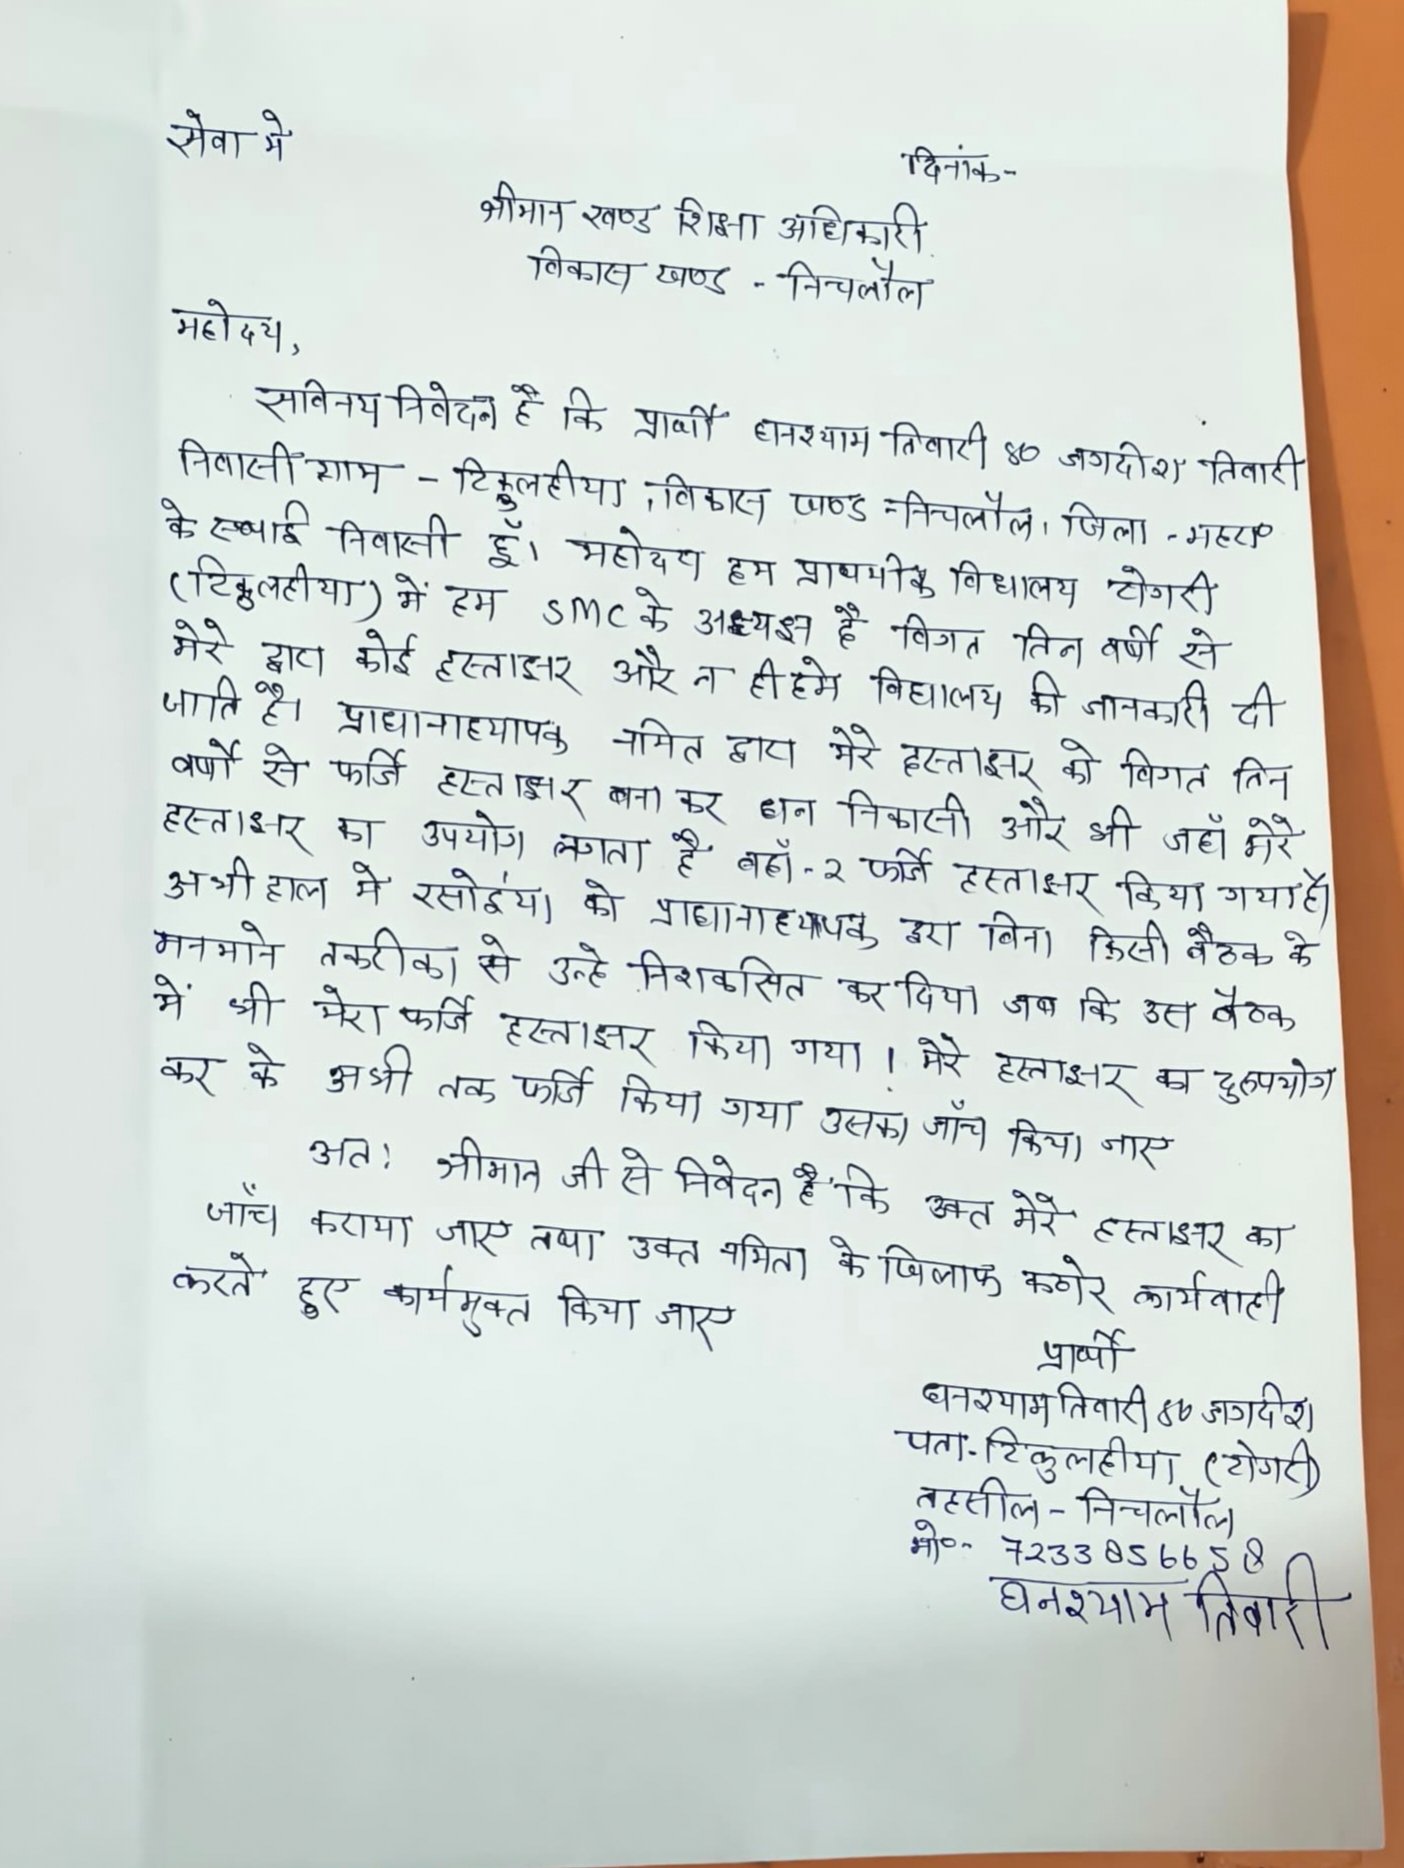 सेवा मे
दिनांक-
श्रीमान खण्ड शिक्षा अधिकारी
विकास खण्ड - निचलौल
महोदय,
सविनय निवेदन है कि प्रार्थी घनश्याम तिवारी S/o जगदीश तिवारी
निवासी ग्राम - टिकुलहीया, विकास खण्ड = निचलौल, जिला - महरा०
के स्थाई निवासी हूँ। महोदय हम प्राथमीक विद्यालय टोगरी
(टिकुलहीया) में हम SMC के अध्यक्ष है विगत तिन वर्षो से
मेरे द्वारा कोई हस्ताक्षर और न ही हमे विद्यालय की जानकारी दी
जाति है। प्राधानाध्यापक नमित द्वारा मेरे हस्ताक्षर को विगत तिन
वर्षो से फर्जि हस्ताक्षर बना कर धन निकासी और भी जहाँ मेरे
हस्ताक्षर का उपयोग लगता है वहाँ-२ फर्जि हस्ताक्षर किया गया है।
अभी हाल मे रसोईया को प्राधानाध्यापक द्वारा बिना किसी बैठक के
मनमाने तकरीका से उन्हे निशकसित कर दिया जब कि उस बैठक
में भी मेरा फर्जि हस्ताक्षर किया गया ! मेरे हस्ताक्षर का दुरुपयोग
कर के अभी तक फर्जि किया गया उसका जाँच किया जाए
अतः श्रीमान जी से निवेदन है कि उक्त मेरे हस्ताक्षर का
जाँच कराया जाए तथा उक्त नमिता के खिलाफ कठोर कार्यवाही
करते हुए कार्यमुक्त किया जाए
प्रार्थी
घनश्याम तिवारी S/o जगदीश
पता-टिकुलहीया (टोगरी)
तहसील - निचलौल
मो०- 7233856658
घनश्याम तिवारी